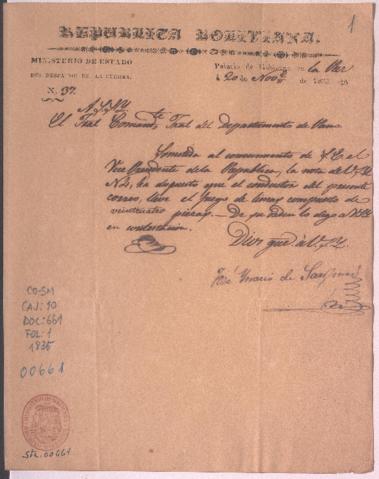 1
REPUBLICA BOLIVIANA.
MINISTERIO DE ESTADO
DEL DESPACHO DE LA GUERRA.
Palacio de Gobierno en La Paz
á 20 de Nov.e de 1835
N. 37.
El Gral Comand.te Gral del Departamento de
Sometida al conocimiento de S.E. el
Vice Presidente de la Republica, la nota de V.
ha dispuesto que el conductor del presente
correo, lleve el juego de compuesto de
veinticuatro piezas. De su orden lo digo á
en contestacion.
Dios gue á V.
José Ignacio de
CO-SM
CAJ: 90
DOC: 661
FOL: 1
1835
00661
Sh. 00661